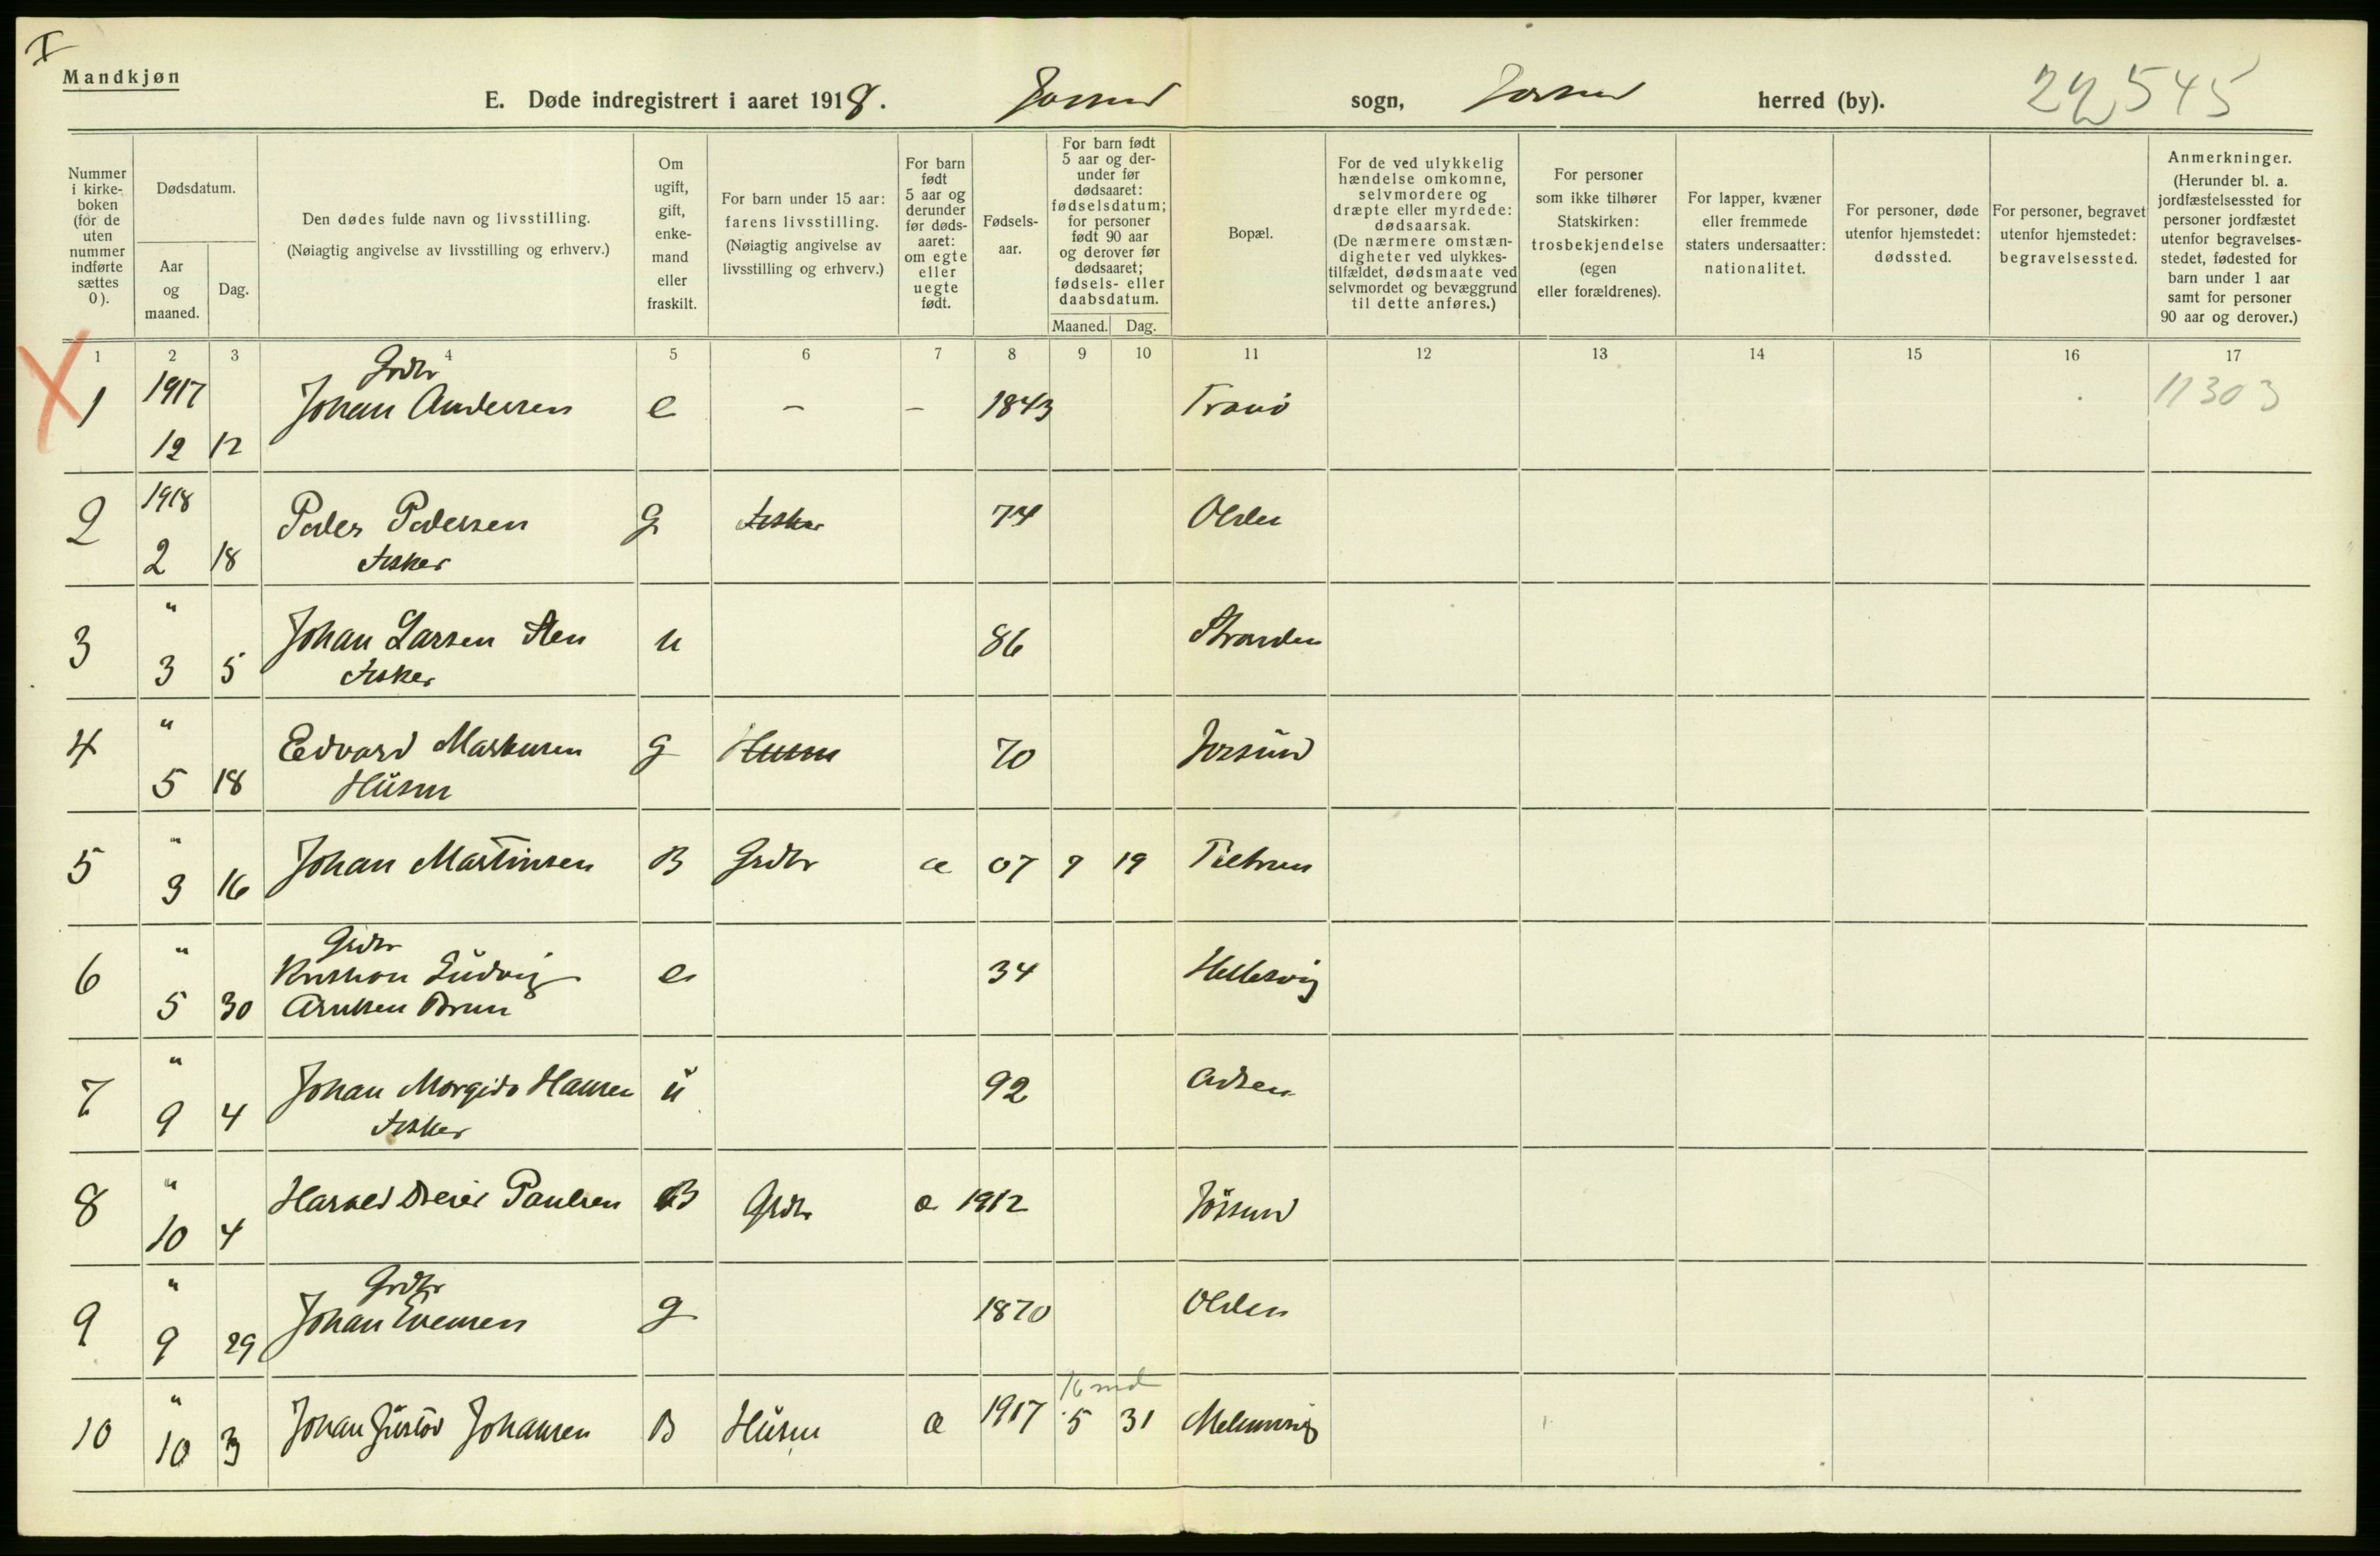 I
Mandkjøn
E. Døde indregistrert i aaret 1918. Jossund sogn, Jossund herred (by). 22545
Nummer i kirke-boken (for de uten nummer indførte sættes 0).
Dødsdatum.
Aar og maaned.
Dag.
Den dødes fulde navn og livsstilling.
(Nøiagtig angivelse av livsstilling og erhverv.)
Om ugift, gift, enke-mand eller fraskilt.
For barn under 15 aar: farens livsstilling.
(Nøiagtig angivelse av livsstilling og erhverv.)
For barn født 5 aar og derunder før døds-aaret: om egte eller uegte født.
Fødsels-aar.
For barn født 5 aar og der-under før dødsaaret: fødselsdatum; for personer født 90 aar og derover før dødsaaret; fødsels- eller daabsdatum.
Maaned. Dag.
Bopæl.
For de ved ulykkelig hændelse omkomne, selvmordere og dræpte eller myrdede: dødsaarsak. (De nærmere omstæn-digheter ved ulykkes-tilfældet, dødsmaate ved selvmordet og bevæggrund til dette anføres.)
For personer som ikke tilhører Statskirken: trosbekjendelse (egen eller forældrenes).
For lapper, kvæner eller fremmede staters undersaatter: nationalitet.
For personer, døde utenfor hjemstedet: dødssted.
For personer, begravet utenfor hjemstedet: begravelsessted.
Anmerkninger.
(Herunder bl. a. jordfæstelsessted for personer jordfæstet utenfor begravelses-stedet, fødested for barn under 1 aar samt for personer 90 aar og derover.)
1 2 3 4 5 6 7 8 9 10 11 12 13 14 15 16 17
1917 Grdbr
1 Johan Andersen e – – 1843 Tranö 11303
12 12
1918
2 Peder Pedersen g Fisker 74 Olden
2 18 Fisker
"
3 Johan Larsen Sten u 86 Stranden
3 5 Fisker
"
4 Edvard Markusen g Husm 70 Jossund
5 18 Husm
"
5 Johan Martinsen B Grdbr æ 07 9 19
3 16
" Grdbr
6 Kristian Ludvig e 34 Hellesvig
5 30 Arntsen Brun
"
7 Johan Morgido Hansen u 92
9 4 Fisker
"
8 Harald Paulsen B Grdbr æ 1912 Jössund
10 4
" Grdbr
9 Johan Evensen g 1870 Olden
9 29
" 16 md
10 Johan Gustav Johansen B Husm æ 1917 5 31
10 3